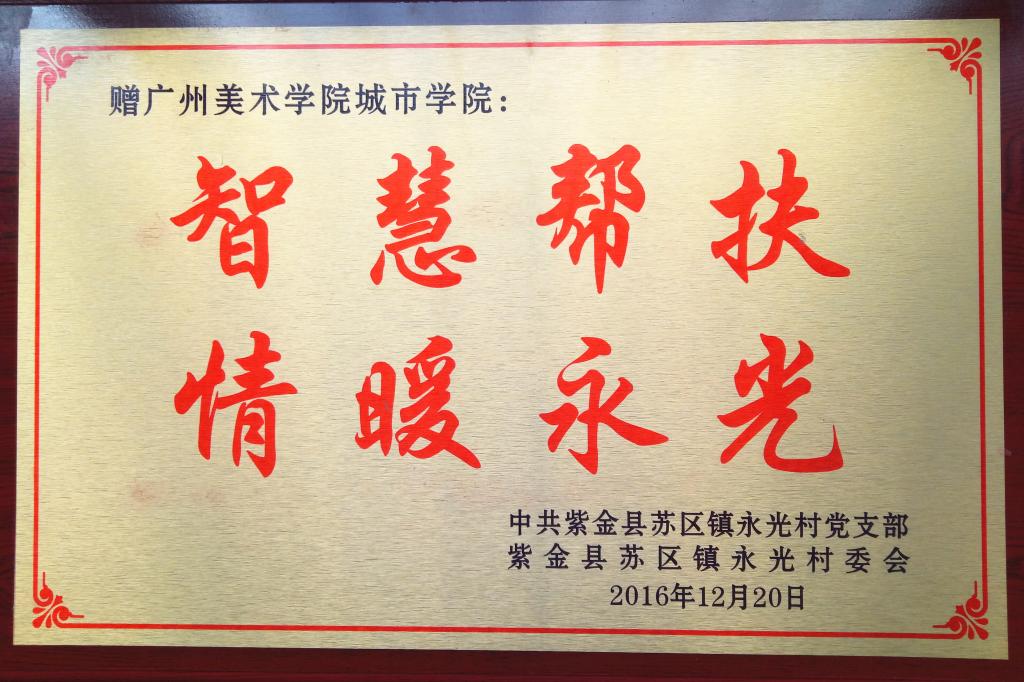 赠广州美术学院城市学院：
智慧帮扶
情暖永光
中共紫金县苏区镇永光村党支部
紫金县苏区镇永光村委会
2016年12月20日